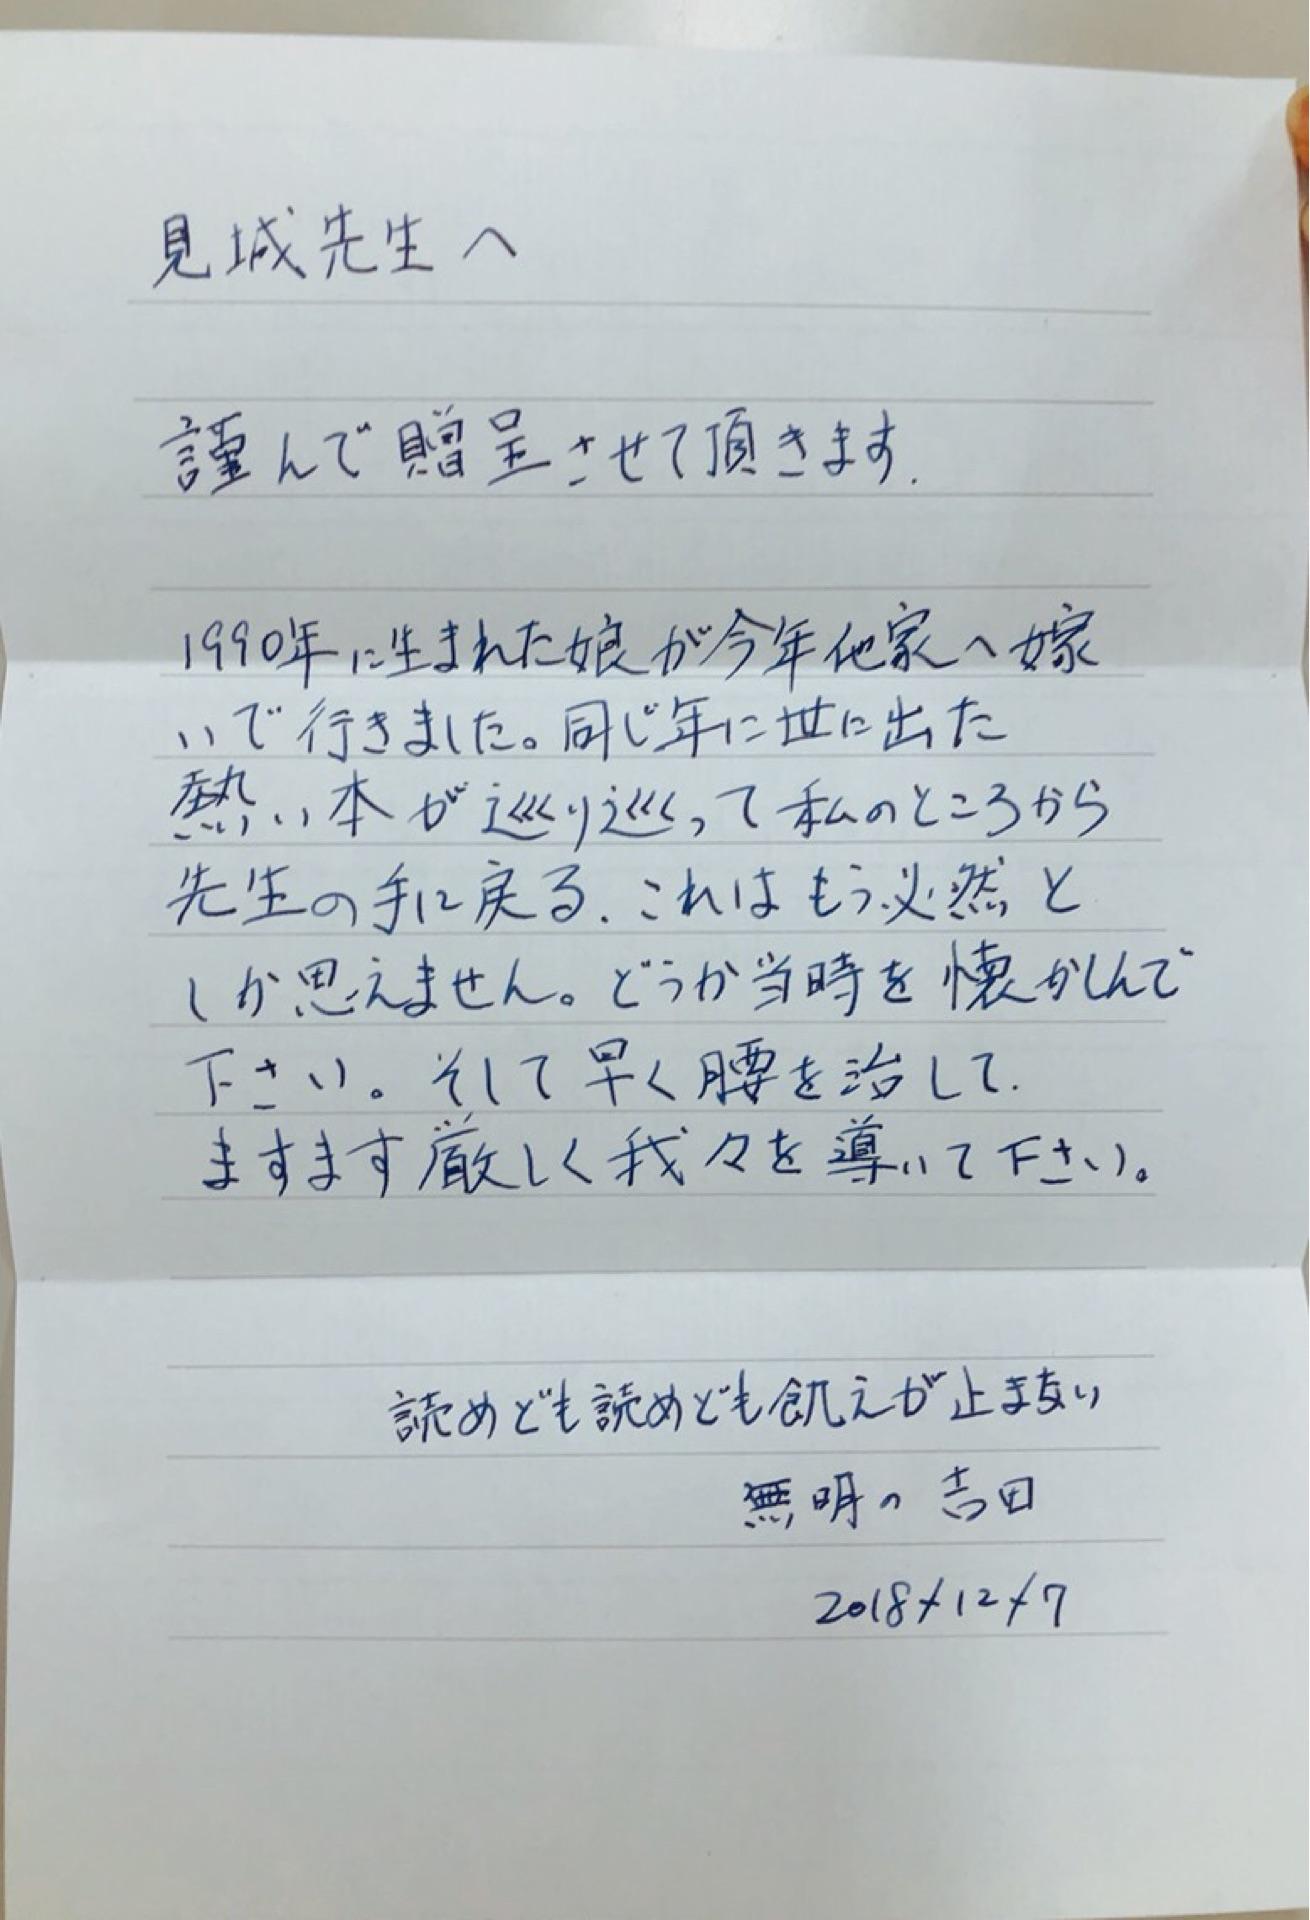 見城先生へ
謹んで贈呈させて頂きます.
1990年に生まれた娘が今年他家へ嫁
いで行きました。同じ年に世に出た
熱い本が巡り巡って私のところから
先生の手に戻る.これはもう必然と
しか思えません。どうか当時を懐かしんで
下さい。そして早く腰を治して.
ますます厳しく我々を導いて下さい。
読めども読めども飢えが止まない
無明の吉田
2018/12/7